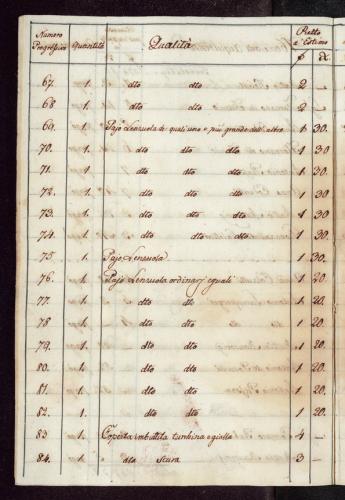 Numero Progressivo Quantità Qualità Prezzo d'Estimo
f x
67. 1. dto dto 2 –
68 1. dto dto 2 –
69. 1. Pajo Lenzuola di quali uno è più grande dell'altro 1 30.
70. 1. dto dto dto 1 30
71. 1. dto dto dto 1 30.
72. 1. dto dto dto 1 30
73. 1. dto dto dto 1 30.
74. 1. dto dto dto 1 30.
75. 1. Pajo Lenzuola 1 30.
76. 1. Pajo Lenzuola ordinarj eguali 1 20.
77. 1. dto dto 1 20.
78 1. dto dto 1 20.
79. 1. dto dto 1 20.
80. 1. dto dto 1 20.
81. 1. dto dto 1 20.
82. 1. dto dto 1 20.
83 1. Coperta imbottita turchina e gialla 4 –
84. 1. dta scura 3 –